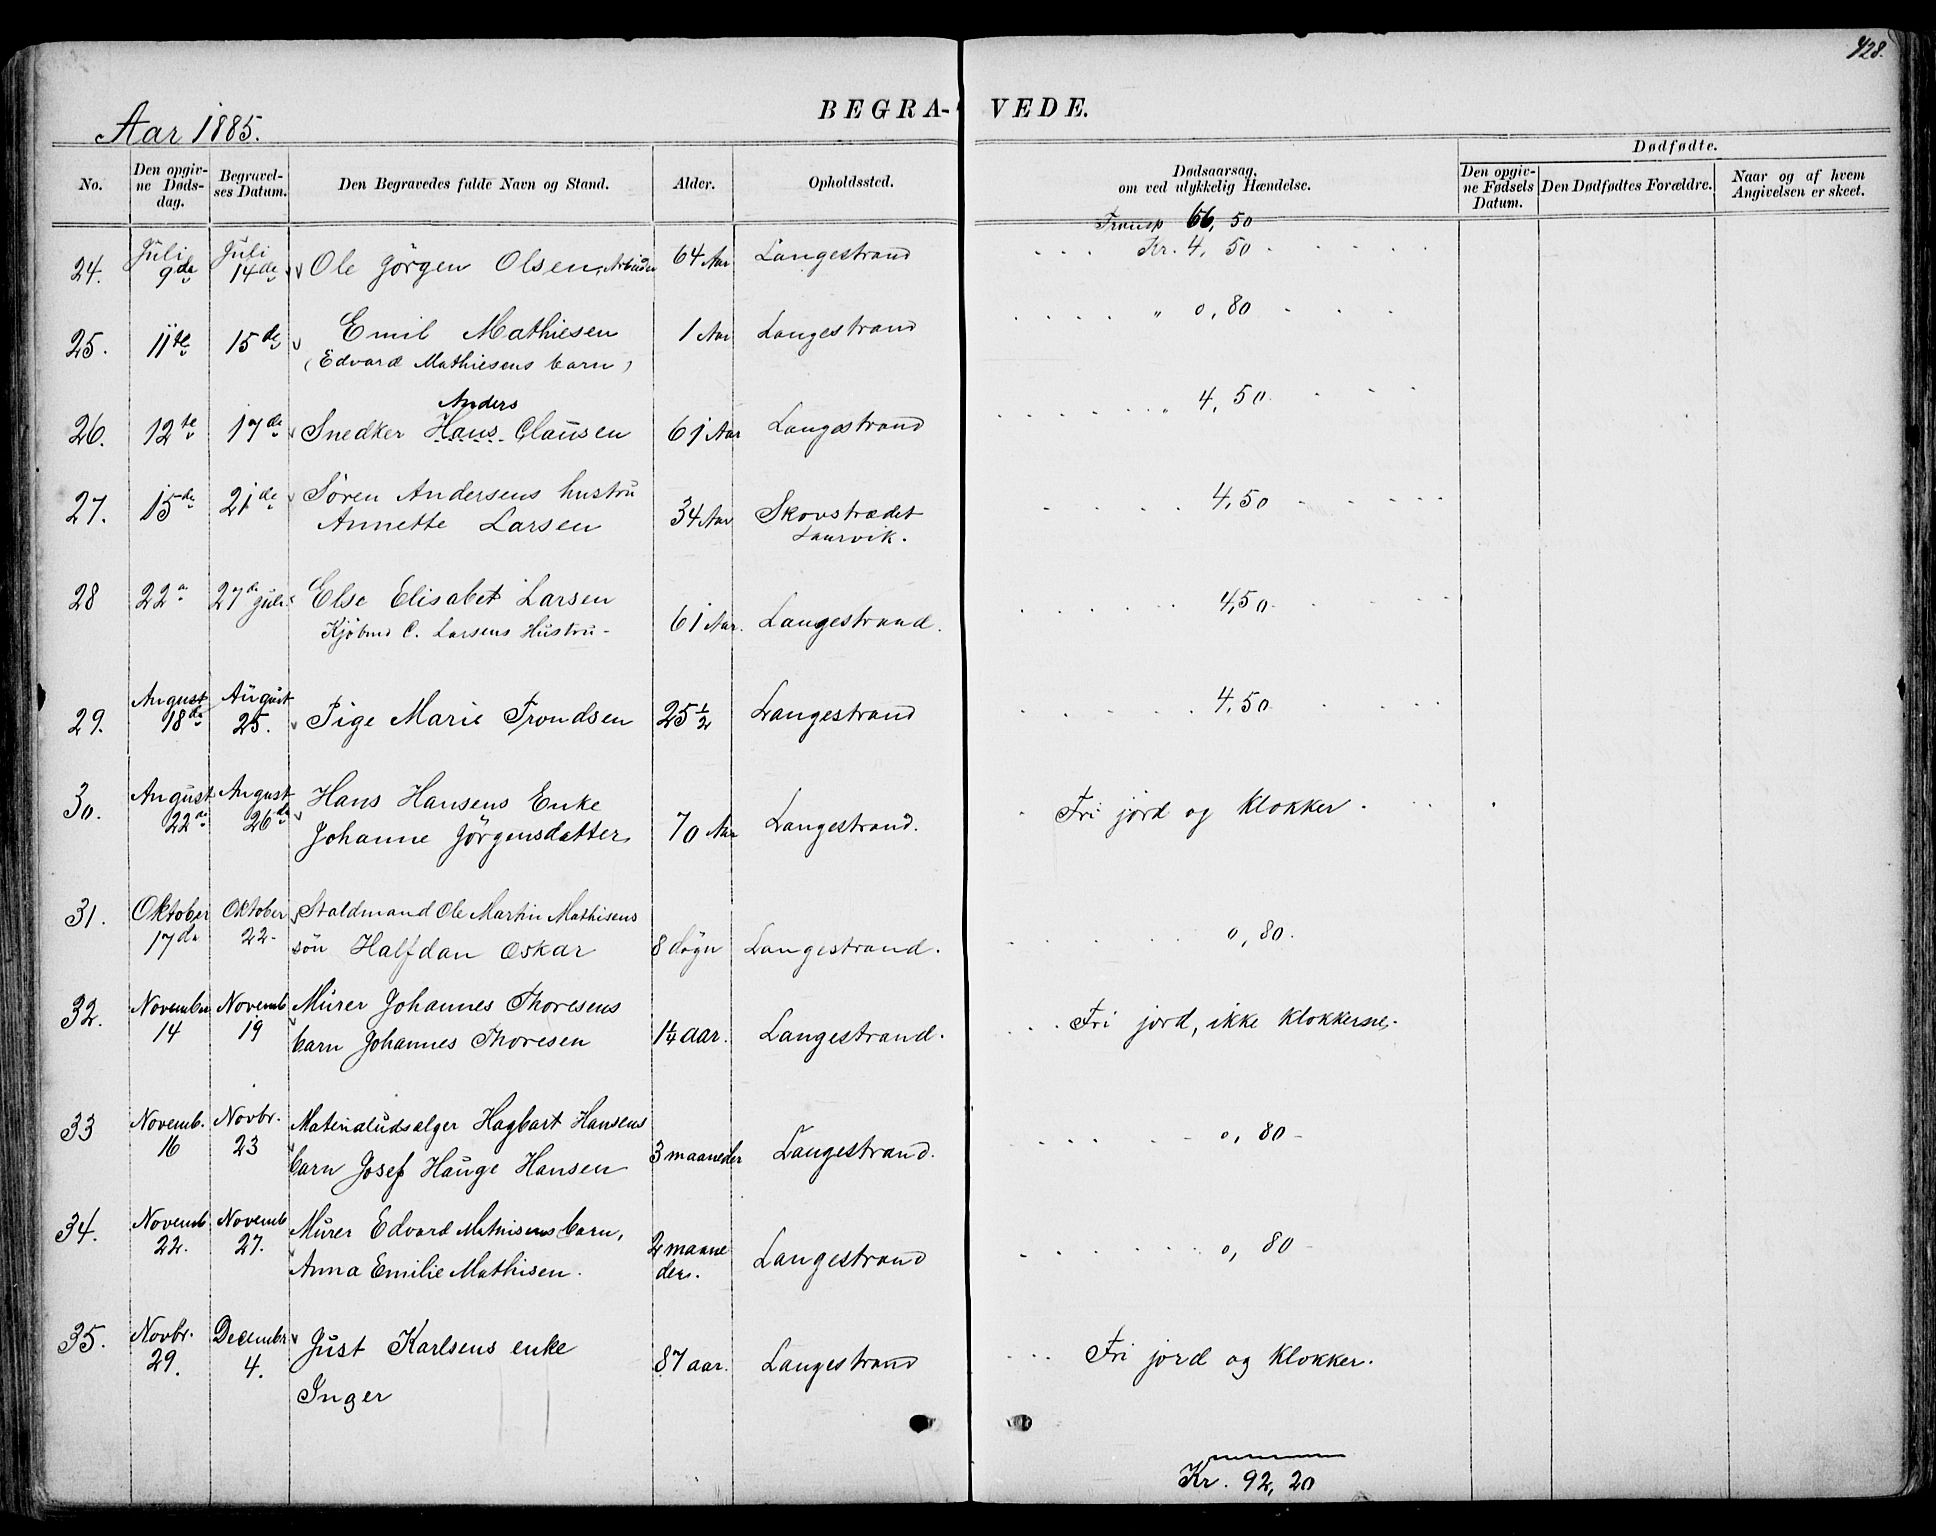 428.
BEGRA- VEDE.
Aar 1885.
Dødfødte.
No. Den opgiv-ne Døds-dag. Begravel-ses Datum. Den Begravedes fulde Navn og Stand. Alder. Opholdssted. Dødsaarsag, om ved ulykkelig Hændelse. Den opgiv-ne Fødsels Datum. Den Dødfødtes Forældre. Naar og af hvem Angivelsen er skeet.
Transp 66,50
24. Juli 9de Juli 14de Ole Jörgen Olsen, Arbeider 64 Aar Langestrand Kr. 4,50
25. 11te 15de Emil Mathiesen 1 Aar Langestrand " 0,80
(Edvard Mathiesens barn)
Anders
26. 12te 17de Snedker Hans Clausen 61 Aar Langestrand " 4,50
27. 15de 21de Sören Andersens hustru
Annette Larsen 34 Aar Skovstrædet 4,50
Laurvik.
28 22de 27de Juli Else Elisabet Larsen 4,50
Kjöbmd C. Larsens Hustru - 61 Aar. Langestrand.
29. August 18de August 25. Pige Marie Trondsen 25 1/2 Langestrand 4,50
30. August 22de August 26de Hans Hansens Enke
Johanne Jörgensdatter 70 Aar Langestrand. Fri jord og Klokker.
31. Oktober 17de Oktober 22- Staldmand Ole Martin Mathisens
sön Halfdan Oskar 8 dögn Langestrand. 0,80.
32. November 14 Novemb 19 Murer Johannes Thoresens
barn Johannes Thoresen 1 1/4 aar. Langestrand. Fri jord, ikke Klokkerne.
33 Novemb. 16 Novbr. 23 Materialudsalger Hagbart Hansens
barn Josef Hauge Hansen 3 maaneder Langestrand. 0,80-
34. Novemb 22. Novemb 27. Murer Edvard Mathisens barn,
Anna Emilie Mathisen. 2 maaneder. Langestrand 0,80-
35. Novbr. 29. Decembr 4. Just Karlsens enke
Inger 87 aar. Langestrand Fri jord og Klokker.
Kr. 92,20